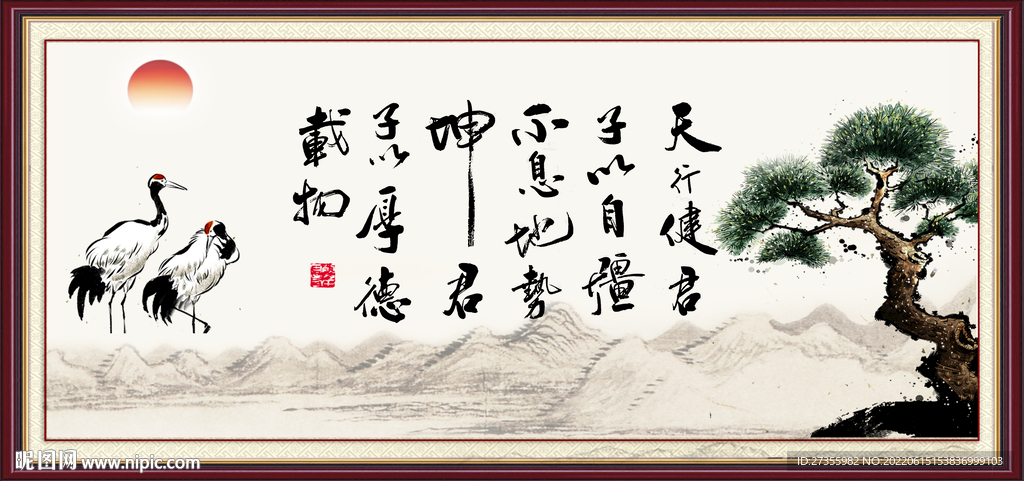 天行健君
子以自疆
不息地勢
坤君
子以厚德
載物
昵图网 www.nipic.com
ID:27355982 NO:20220615153836999103